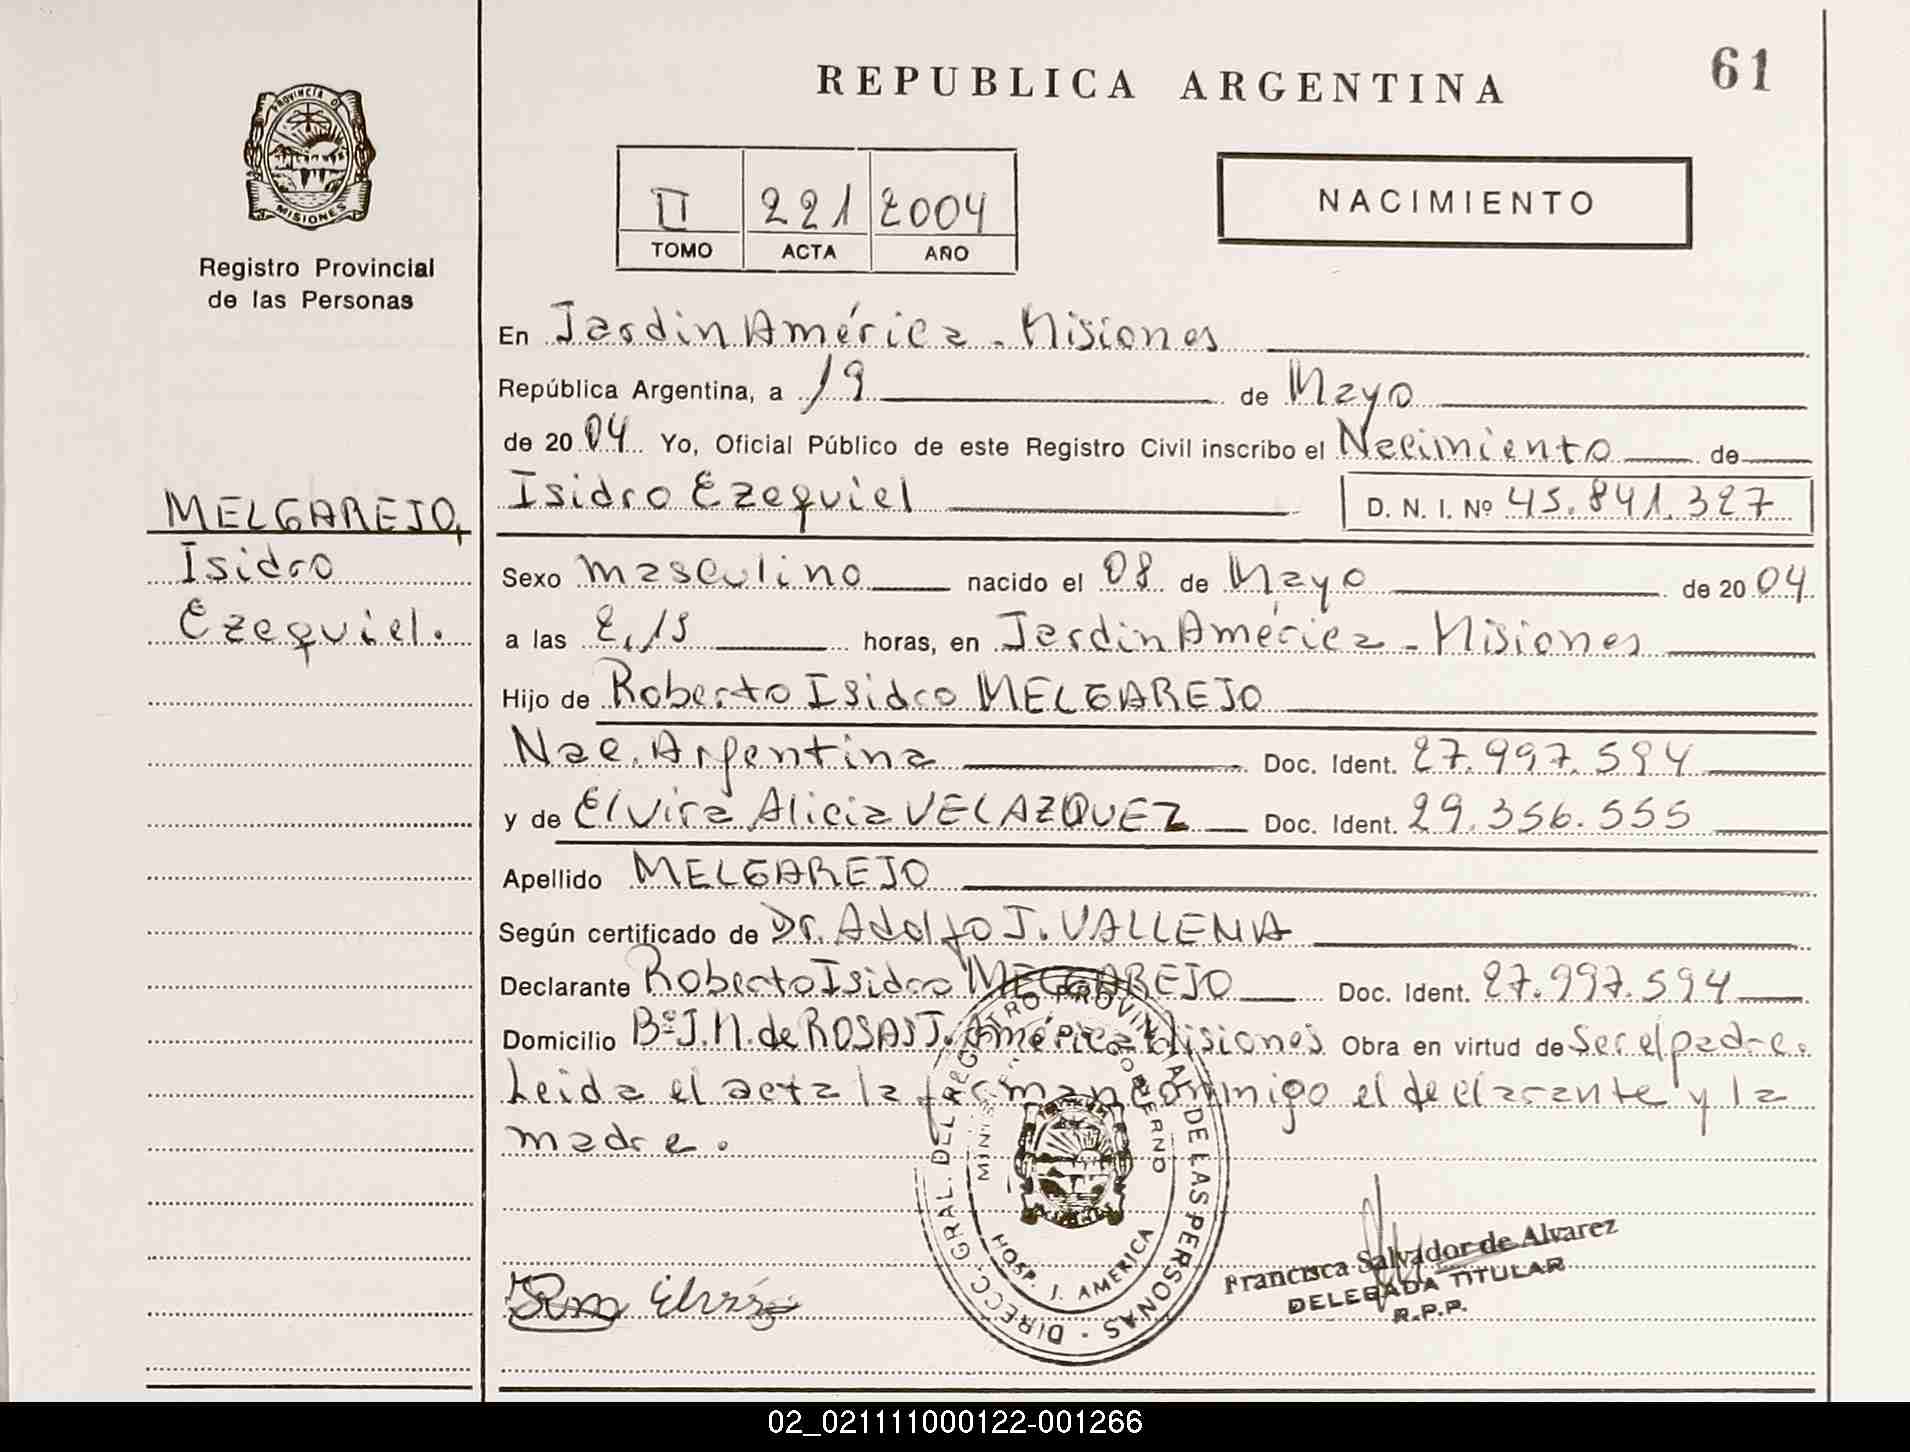 REPUBLICA ARGENTINA
61
PROVINCIA DE
MISIONES
Registro Provincial
de las Personas
II 221 2004
TOMO ACTA AÑO
NACIMIENTO
En Jardin América - Misiones
República Argentina, a 19 de Mayo
de 2004 Yo, Oficial Público de este Registro Civil inscribo el Nacimiento de
MELGAREJO,
Isidro
Ezequiel.
Isidro Ezequiel D. N. I. Nº 45.841.327
Sexo masculino nacido el 08 de Mayo de 2004
a las 2,15 horas, en Jardin América - Misiones
Hijo de Roberto Isidro MELGAREJO
Nac. Argentina Doc. Ident. 27.997.594
y de Elvira Alicia VELAZQUEZ Doc. Ident. 29.356.555
Apellido MELGAREJO
Según certificado de Dr. Adolfo J. VALLENA
Declarante Roberto Isidro MELGAREJO Doc. Ident. 27.997.594
Domicilio Bº J.M. de ROSAS J. América Misiones Obra en virtud de Ser el padre.
Leida el acta la firman conmigo el declarante y la
madre.
DIRECC. GRAL. DEL REGISTRO PROVINCIAL DE LAS PERSONAS
HOSP. J. AMERICA
Francisca Salvador de Alvarez
DELEGADA TITULAR
R.P.P.
02_021111000122-001266